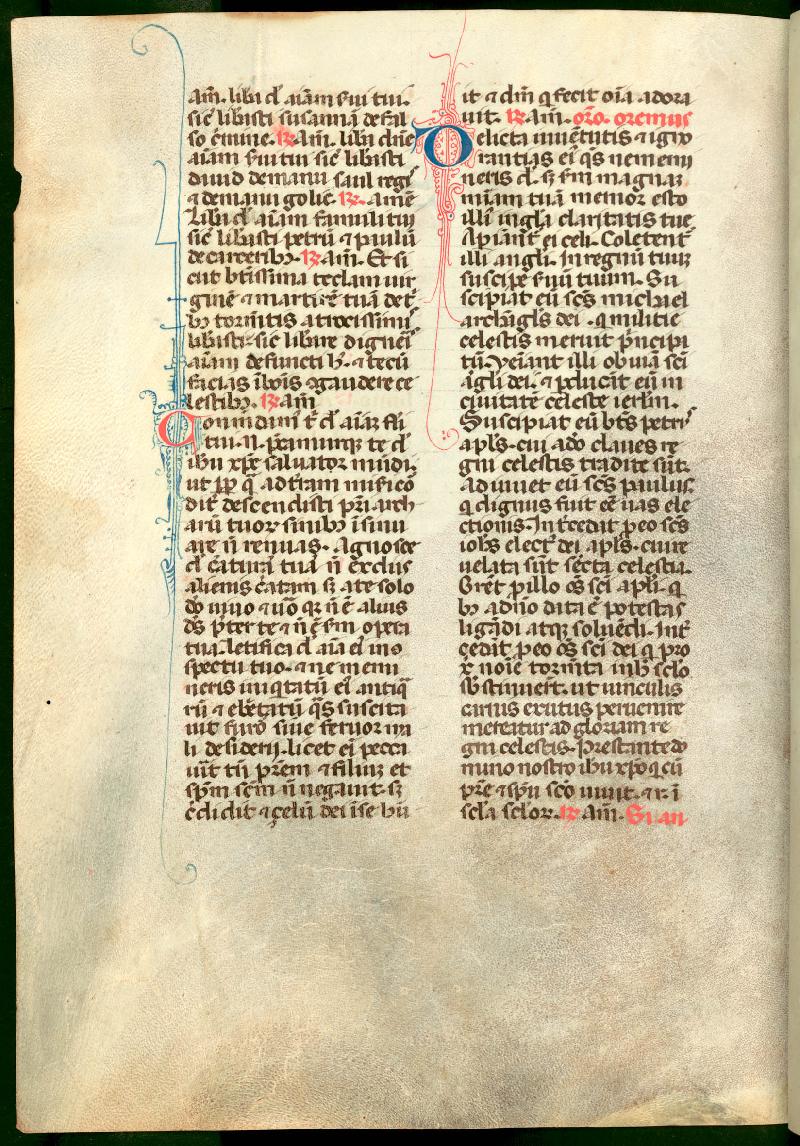 am̄. lib̄a d̄ aīam ſ̄ui tui.
sic̄ lib̄asti susannā de fal
so c̄mine. ℟. am̄. lib̄a dn̄e
aīam ſ̄ui tui sic̄ libasti
dauid de manu saul regꝭ
⁊ de manu golie. ℟. amē
Lib̄a d̄ aīam famuli tui
sic̄ libasti petrū ⁊ paulū
de carceribꝫ. ℟. am̄. Et si
cut bt̄issima teclam uir
ginē ⁊ martirē tuā de t̄
bꝫ torm̄tis atrocissimꝭ
libasti. sic libare digneꝭ
aīam defuncti h̄. ⁊ tecū
facias ī bōis ꝯgaudere ce
lestibꝫ. ℟. am̄
Comendam̄ t̄ d̄ aīaꝫ f̄li
tui .N. p̄camurqꝫ te d̄
ihu xp̄e saluator mūdi.
ut ꝓp̄ q̄ ad t̄ram mīſico
dit̄ descendisti pr̄iarch
arū tuoꝝ sinibꝫ īsinu
are n̄ renuas. Agnosce
d̄ c̄aturā tuā n̄ ex d̄iis
alienis c̄atam sꝫ a te solo
dō uiuo ⁊ u̅o qꝛ n̄ ē alius
ds̄ p̄ter te ⁊ n̄ ē ſm̄ opera
tua. letifica d̄ aīa eiꝰ ī ꝯ
spectu tuo. ⁊ ne memi
neris iniq̄tatū eiꝰ antiq̄
rū ⁊ eb̄etatū q̄s suscita
uit furor siue feruor ma
li desiderij. licet ei̅ pecca
uit̄ tn̄ pr̄em ⁊ filiuꝫ et
sp̄m scm̄ n̄ negauit. sꝫ
c̄didit ⁊ çelū dei ī se ha̅
it ⁊ dm̄ q̄ fecit oīa adora
uit. ℟. am̄. or̄o. oremus
Delicta iuuētutis ⁊ igno
rantias eiꝰ q̄s ne memi
neris d̄. sꝫ ſm̄ magnaꝫ
mīam tuā memor esto
illiꝰ in gl̄a claritatis tue
Apiant̄ ei celi. Coletent̄
illi angli. In regnū tuuꝫ
suscipe ſ̄uū tuum. Su
scipiat eū sc̄s michael
archāgl̄s dei. q̄ militie
celestis meruit p̄ncipa
tū. Veniant illi obuiā sc̄i
āgli dei. ⁊ ꝑducāt eū in
ciuitatē celestē ierlm̄.
Suscipiat eū bt̄s petrꝰ
apl̄s. cui a dō claues re
gni celestis tradite sūt.
Adiuuet eū sc̄s paulus.
q̄ dignus fuit eē uas ele
ctionis. Int̄cedat ꝓ eo sc̄s
ioh̄s elect̄ dei apl̄s. cui re
uelata sūt sec̄ta celestia.
Orēt ꝓ illo oēs sc̄i apl̄i. q̄
bꝫ a dn̄o data ē potestas
ligādi atqꝫ soluēdi. Int̄
cedāt ꝓ eo oēs sc̄i dei q̄ pro
x̄ noīe torm̄ta in hꝰ sclo
sbstinuer̄t. ut uinculis
carnis exutus peruenire
mereatur ad gloriam re
gni celestis. Prestante do
mino nostro ihu xp̄o q̄ cū
pr̄e ⁊ sp̄u sc̄o uiuit. ⁊ r. ī
scl̄a scl̄oꝝ. ℟. am̄. Si an